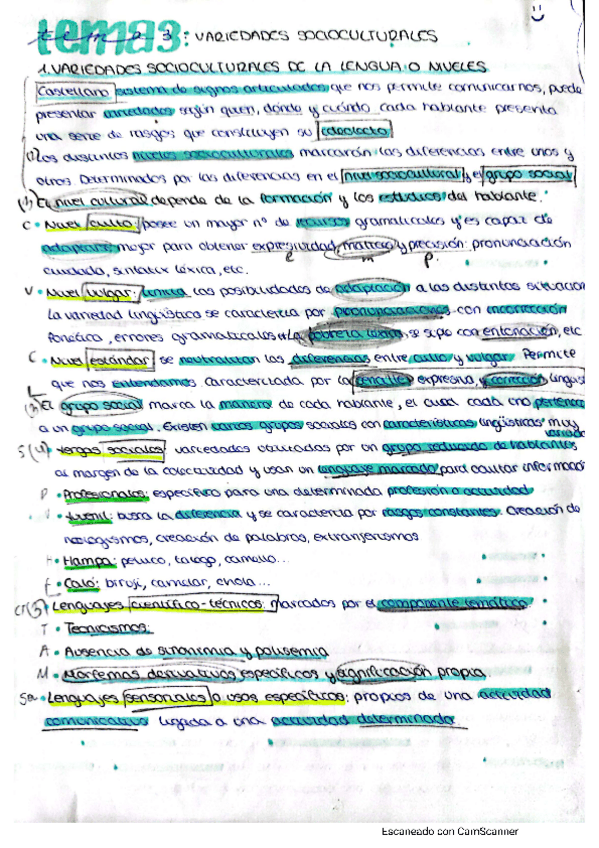 tema 3: VARIEDADES SOCIOCULTURALES
1. VARIEDADES SOCIOCULTURALES DE LA LENGUA O NIVELES
Castellano sistema de signos articulados que nos permite comunicarnos, puede
presentar variedades según quien, donde y cuándo cada hablante presenta
una serie de rasgos que constituyen su idiolecto
(1) Los distintos niveles socioculturales marcarán las diferencias entre unos y
otros Determinados por las diferencias en el nivel sociocultural y el grupo social
El nivel cultural depende de la formación y los estudios del hablante.
C • Nivel culto: posee un mayor nº de recursos gramaticales y es capaz de
adaptarse mejor para obtener expresividad, matices y precisión: pronunciación
e m p.
cuidada, sintaxis léxica, etc.
V • Nivel vulgar: limita las posibilidades de adaptación a las distintas situacion
La variedad lingüística se caracteriza por pronunciaciones con incorrección
fonética, errores gramaticales pobreza léxica, se suple con entonación, etc
C • Nivel estándar: se neutralizan las diferencias entre culto y vulgar. Permite
que nos entendamos. Caracterizada por la expresiva, corrección lingüís
El grupo social marca la manera de cada hablante, el cual cada uno pertenece
a un grupo social. Existen varios grupos sociales con características lingüísticas muy
variadas
S (4) Jergas sociales: variedades utilizadas por un grupo reducido de hablantes
al margen de la colectividad y usan un lenguaje marcado para ocultar informació
P • Profesionales: específico para una determinada profesión o actividad
• Juvenil: busca la diferencia y se caracteriza por rasgos constantes. Creación de
neologismos, creación de palabras, extranjerismos
• Hampa: peluco, talego, camello...
• Caló: biruji, camelar, chola...
(5) Lenguajes científico-técnicos: marcados por el componente temático.
T • Tecnicismos:
A • Ausencia de sinonimia y polisemia
M • Morfemas derivativos específicos y significación propia
Lenguajes sensoriales o usos específicos: propios de una actividad
comunicativa ligada a una actividad determinada.
Escaneado con CamScanner